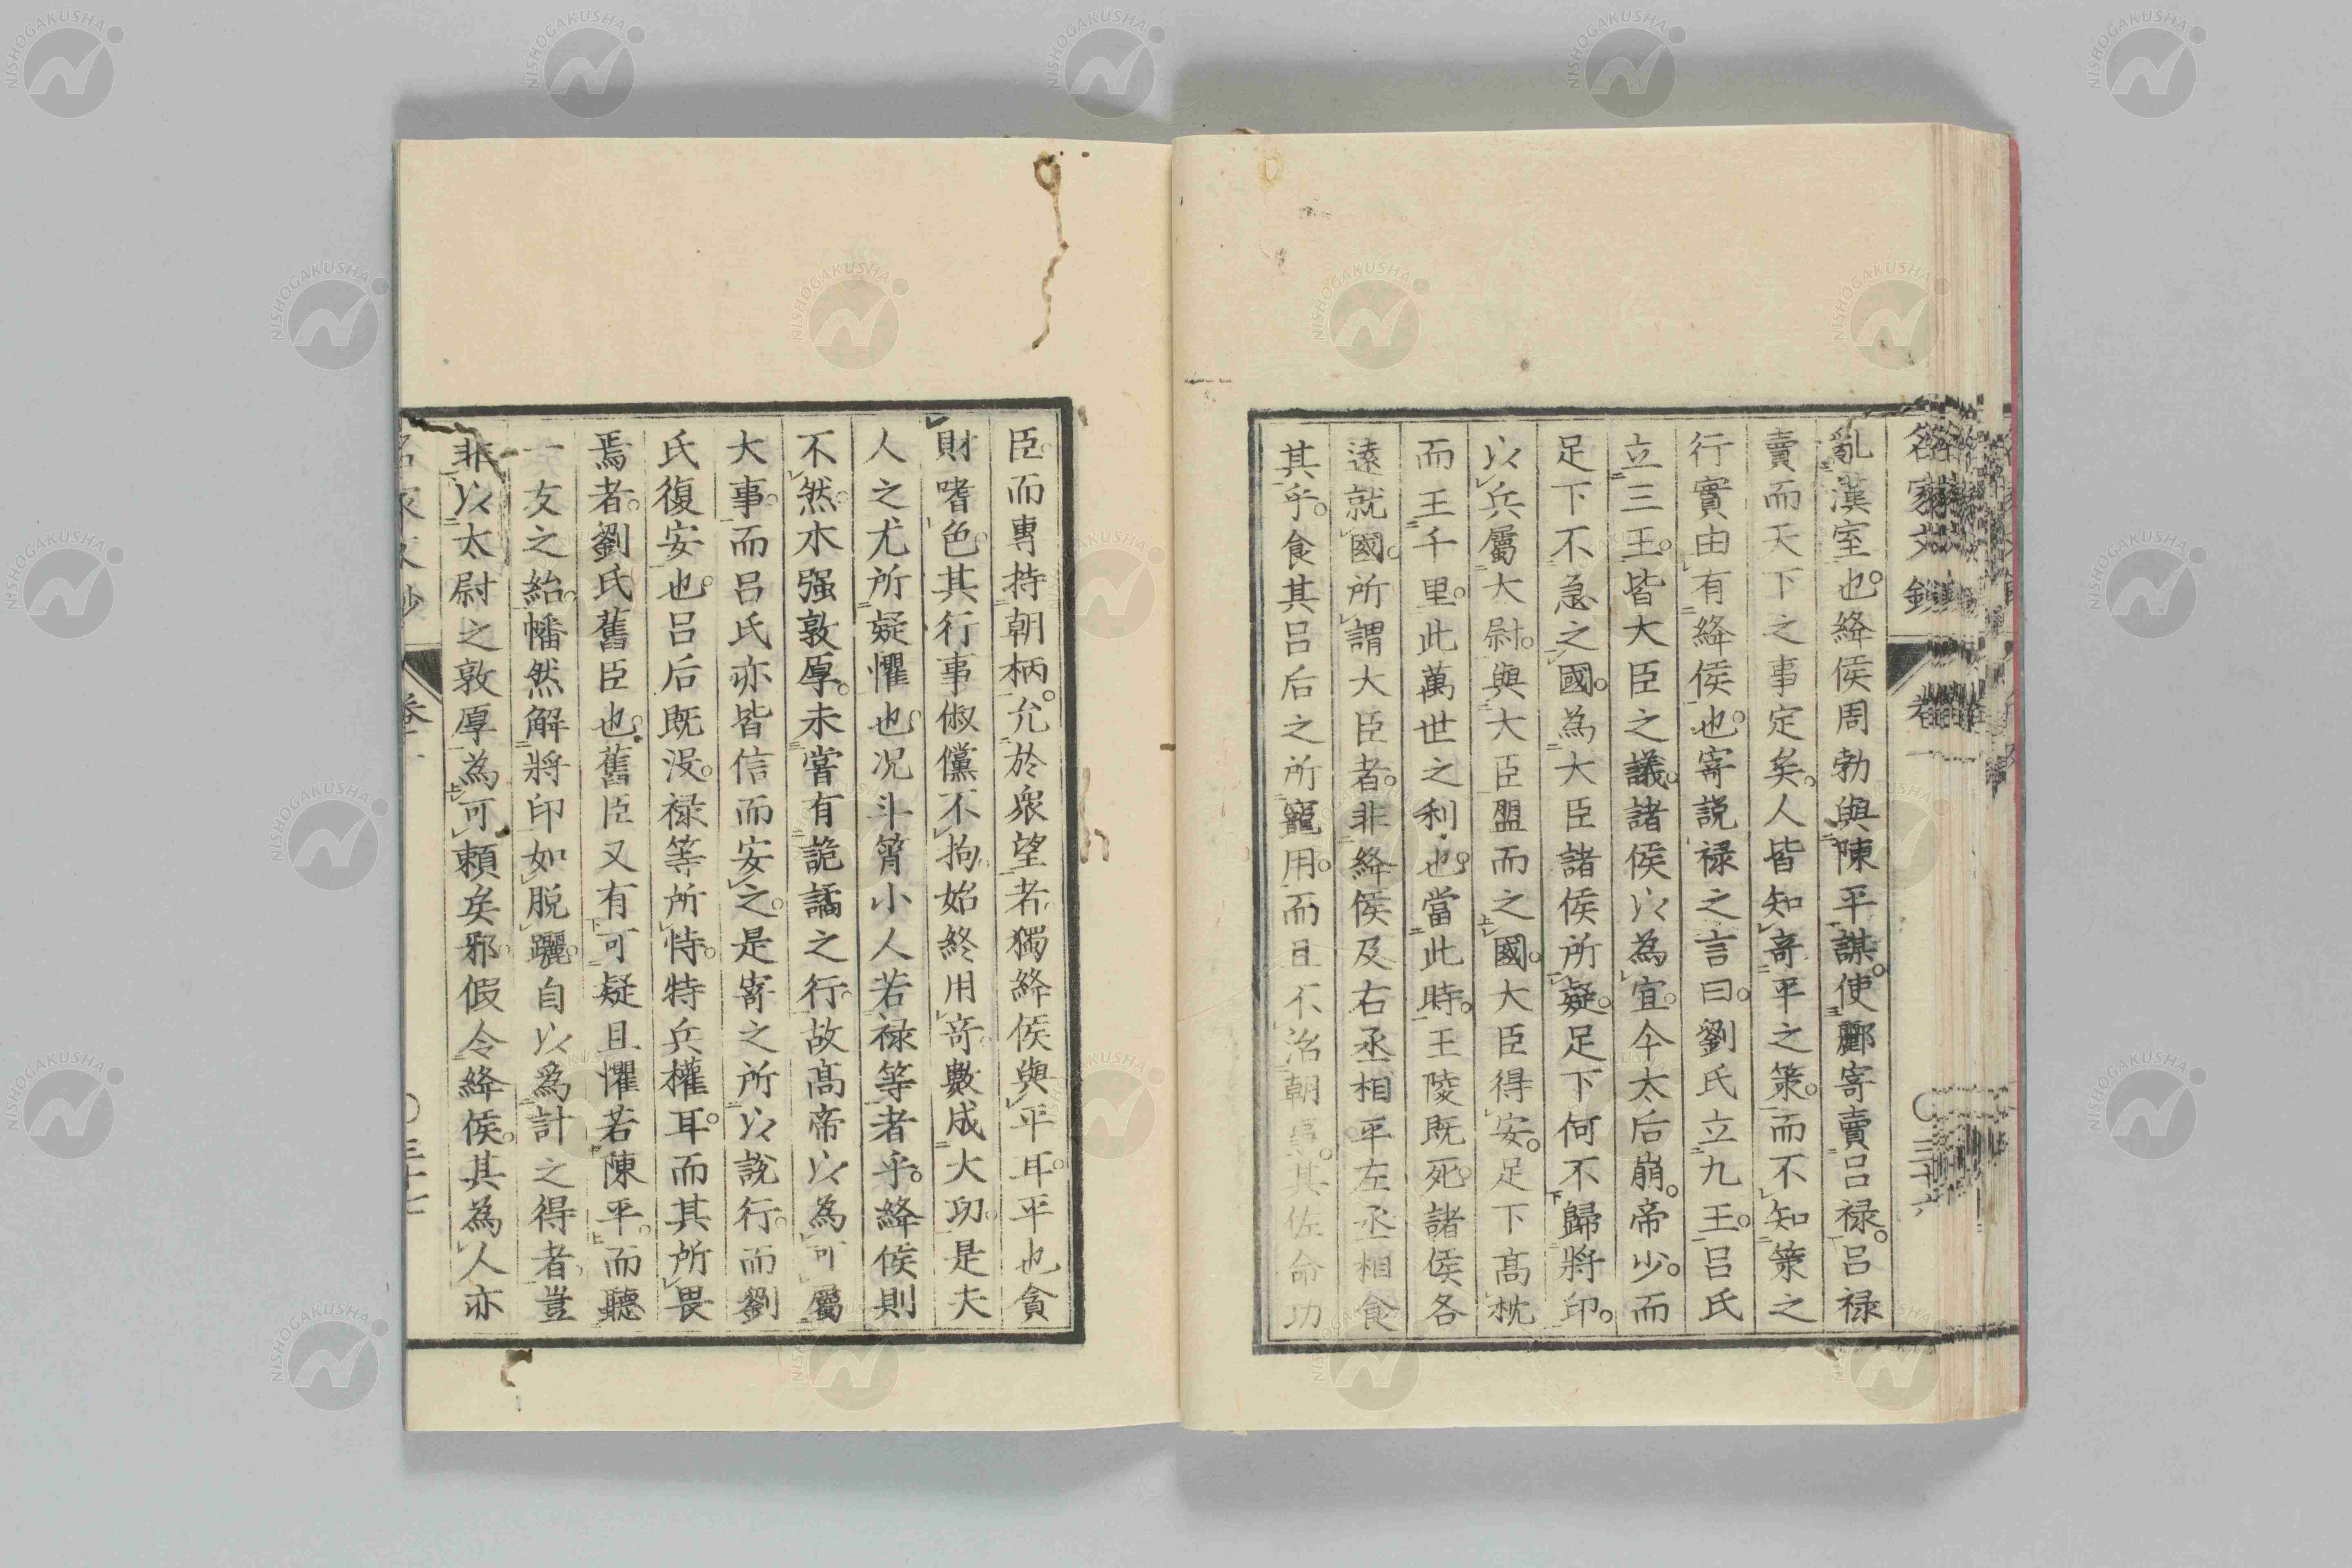 名家文鈔 卷一 〇三十六
亂漢室也。絳侯周勃與陳平謀。使酈寄賣呂祿。呂祿
賣而天下之事定矣。人皆知寄平之策。而不知策之
行實由有絳侯也。寄說祿之言曰。劉氏立九王。呂氏
立三王。皆大臣之議。諸侯以為宜。今太后崩。帝少。而
足下不急之國。為大臣諸侯所疑。足下何不歸將印。
以兵屬大尉。與大臣盟而之國。大臣得安。足下高枕
而王千里。此萬世之利也。當此時。王陵既死。諸侯各
遠就國。所謂大臣者。非絳侯及右丞相平左丞相食
其乎。食其呂后之所寵用。而且不治朝事。其佐命功
臣。而專持朝柄。允於衆望者。獨絳侯與平耳。平也貪
財嗜色。其行事俶儻不拘。始終用奇數成大功。是夫
人之尤所疑懼也。况斗筲小人若祿等者乎。絳侯則
不然。木强敦厚。未嘗有詭譎之行。故高帝以為可屬
大事。而呂氏亦皆信而安之。是寄之所以說行。而劉
氏復安也。呂后既沒。祿等所恃。特兵權耳。而其所畏
焉者。劉氏舊臣也。舊臣又有可疑且懼若陳平。而聽
一友之紿。幡然解將印如脫躧。自以為計之得者。豈
非以太尉之敦厚為可賴矣邪。假令絳侯。其為人亦
名家文鈔 卷一 〇三十七
NISHOGAKUSHA